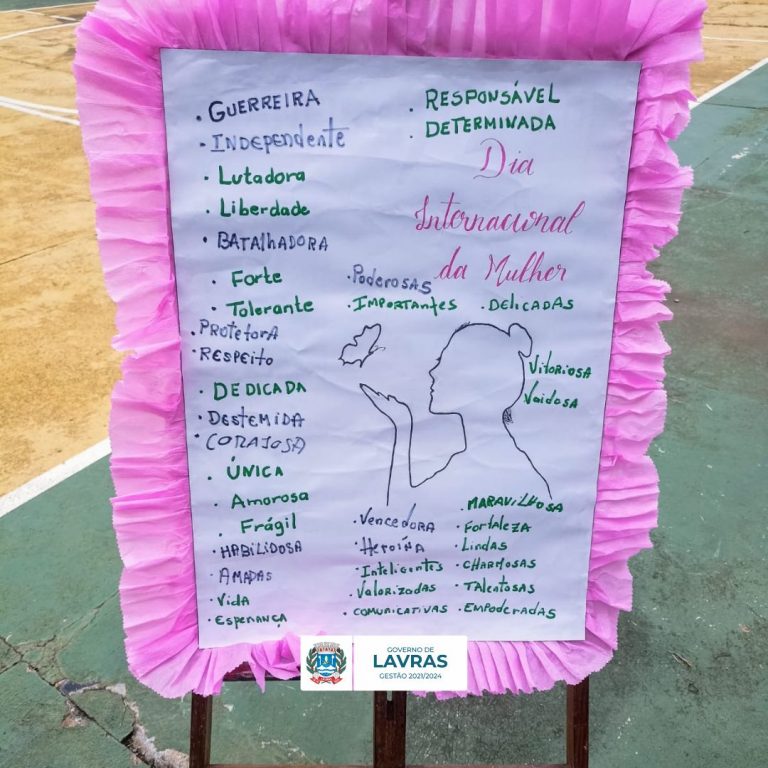 • GUERREIRA
• INDEPENDENTE
• Lutadora
• Liberdade
• BATALHADORA
• Forte
• Tolerante
• PROTETORA
• RESPEITO
• DEDICADA
• DESTEMIDA
• CORAJOSA
• ÚNICA
• Amorosa
• Frágil
• HABILIDOSA
• AMADAS
• Vida
• ESPERANÇA
• RESPONSÁVEL
• DETERMINADA
Dia
Internacional
da Mulher
• Poderosas
• IMPORTANTES
• DELICADAS
Vitoriosa
Vaidosa
• Vencedora
• Heroína
• Inteligentes
• Valorizadas
• COMUNICATIVAS
• MARAVILHOSA
• Fortaleza
• Lindas
• CHARMOSAS
• TALENTOSAS
• EMPODERADAS
GOVERNO DE
LAVRAS
GESTÃO 2021/2024